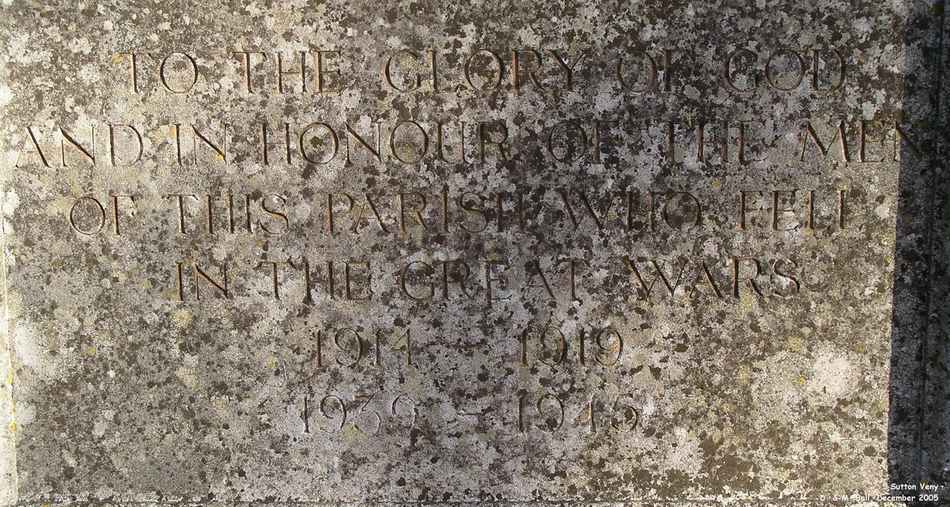 TO THE GLORY OF GOD
AND IN HONOUR OF THE MEN
OF THIS PARISH WHO FELL
IN THE GREAT WARS
1914 - 1919
1939 - 1945
Sutton Veny -
December 2005